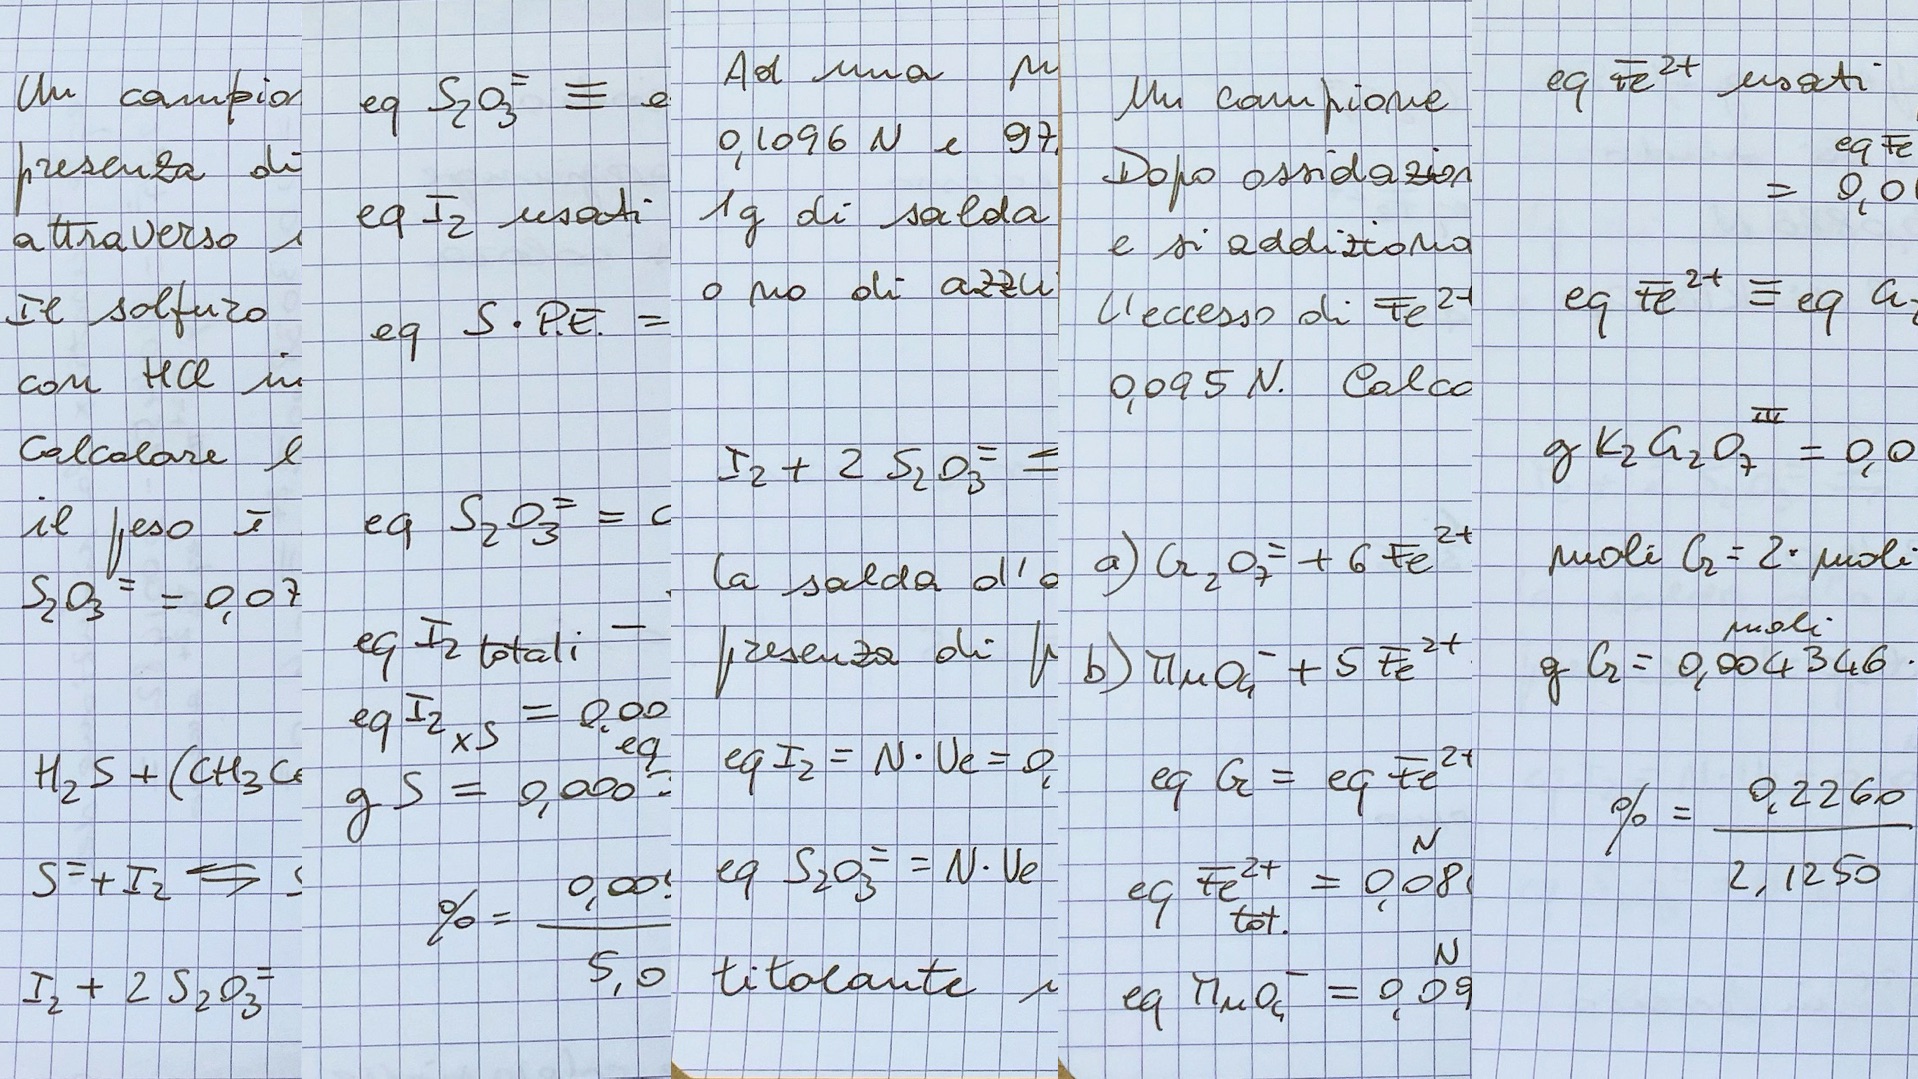 Un campion
presenza di
attraverso
Il solfuro
con HCl in
Calcolare l
il peso
S₂O₃⁼ = 0,07
H₂S + (CH₃C
S⁼ + I₂ ⇌ S
I₂ + 2 S₂O₃⁼
eq S₂O₃⁼ ≡ e
eq I₂ usati
eq S · P.E. =
eq S₂O₃⁼ =
eq I₂ totali
eq I₂ xS = 0,00
eq
g S = 0,000
% = 0,00
5,0
Ad una
0,1096 N e 97,
1g di salda
o no di azzu
I₂ + 2 S₂O₃⁼ ⇌
la salda d'
presenza di
eq I₂ = N · Ve = 0,
eq S₂O₃⁼ = N · Ve
titolante
Un campione
Dopo ossidazion
e si addiziona
L'eccesso di Fe²⁺
0,095 N. Calco
a) Cr₂O₇⁼ + 6 Fe²⁺
b) MnO₄⁻ + 5 Fe²⁺
eq Cr = eq Fe²⁺
N
eq Fe²⁺ tot. = 0,08
N
eq MnO₄⁻ = 0,09
eq Fe²⁺ usati
eq Fe
= 0,0
eq Fe²⁺ ≡ eq Cr
g K₂Cr₂O₇ = 0,0
moli Cr = 2 · moli
moli
g Cr = 0,004346 ·
% = 0,2260
2,1250